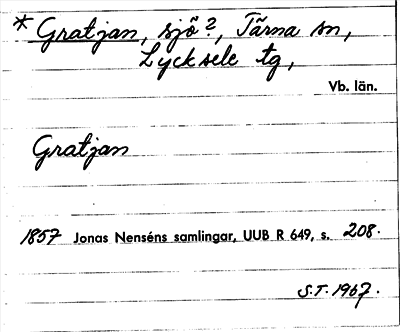 * Gratjan, sjö?, Tärna sn,
Lycksele tg,
Vb. län.
Gratjan
1857 Jonas Nenséns samlingar, UUB R 649, s. 208.
S.T. 1967.